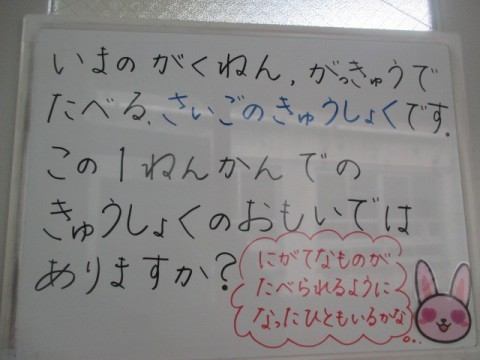 いまの がくねん、がっきゅうで
たべる、さいごのきゅうしょくです。
この1ねんかんでの
きゅうしょくのおもいでは
ありますか?
にがてなものが
たべられるように
なったひともいるかな